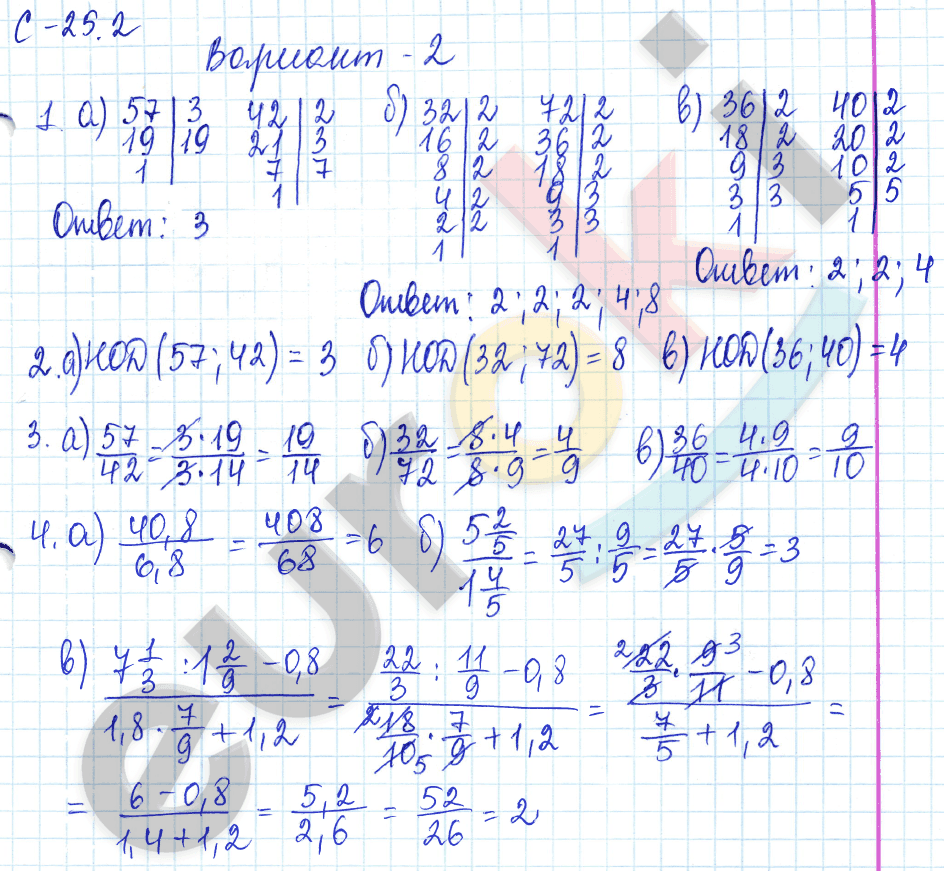 С-25.2
Вариант - 2
1. а) 57 | 3   42 | 2   б) 32 | 2   72 | 2   в) 36 | 2   40 | 2
19 | 19   21 | 3   16 | 2   36 | 2   18 | 2   20 | 2
1 |   7 | 7   8 | 2   18 | 2   9 | 3   10 | 2
1 |   4 | 2   9 | 3   3 | 3   5 | 5
2 | 2   3 | 3   1 |   1 |
1 |   1 |
Ответ: 3
Ответ: 2; 2; 2; 4; 8
Ответ: 2; 2; 4
2. а) НОД (57; 42) = 3   б) НОД (32; 72) = 8   в) НОД (36; 40) = 4
3. а) 57/42 = 3·19/3·14 = 19/14   б) 32/72 = 8·4/8·9 = 4/9   в) 36/40 = 4·9/4·10 = 9/10
4. а) 40,8/6,8 = 408/68 = 6   б) 5 2/5 / 1 4/5 = 27/5 : 9/5 = 27/5 · 5/9 = 3
в) (7 1/3 : 1 2/9 - 0,8)/(1,8 · 7/9 + 1,2) = (22/3 : 11/9 - 0,8)/(2 18/10 5 · 7/9 + 1,2) = (2 22/3 · 9 3/11 - 0,8)/(7/5 + 1,2) =
= (6 - 0,8)/(1,4 + 1,2) = 5,2/2,6 = 52/26 = 2
euroki